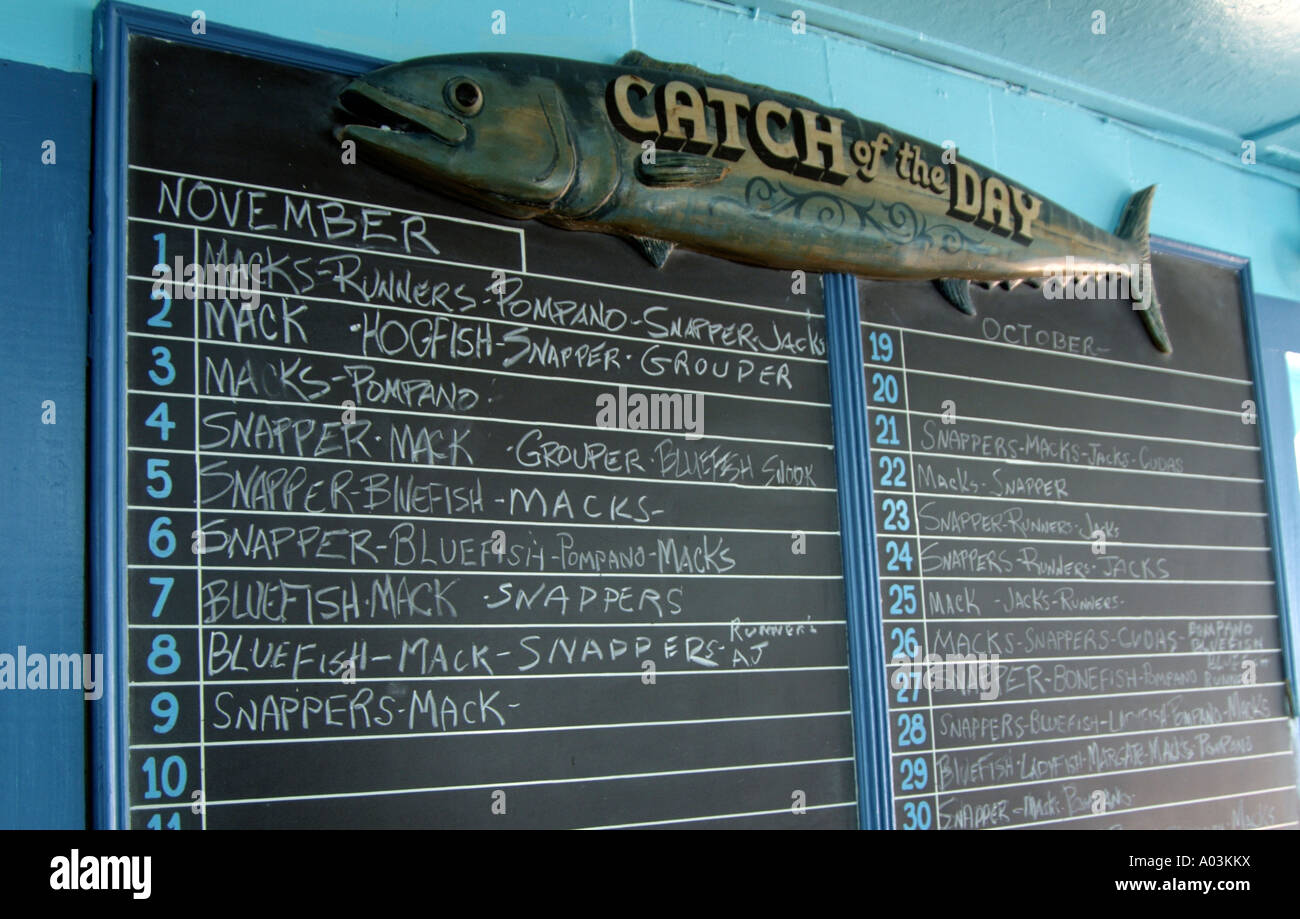 CATCH of the DAY
NOVEMBER
1 MACKS-RUNNERS-POMPANO-SNAPPER-JACKS
2 MACK ·HOGFISH-SNAPPER·GROUPER
3 MACKS-POMPANO·
4 SNAPPER·MACK ·GROUPER·BLUEFISH SNOOK
5 SNAPPER-BLUEFISH-MACKS-
6 SNAPPER-BLUEFISH-POMPANO-MACKS
7 BLUEFISH·MACK ·SNAPPERS
8 BLUEFISH-MACK-SNAPPERS- RUNNER'S
AJ
9 SNAPPERS-MACK-
10
11
OCTOBER-
19
20
21 SNAPPERS-MACKS-JACKS-CUDAS
22 MACKS-SNAPPER
23 SNAPPER-RUNNERS-JACKS
24 SNAPPERS-RUNNERS-JACKS
25 MACK -JACKS-RUNNERS-
26 MACKS-SNAPPERS-CUDAS- POMPANO
BLUEFISH
27 SNAPPER-BONEFISH-POMPANO
28 SNAPPERS-BLUEFISH-LADYFISH-POMPANO-MACKS
29 BLUEFISH-LADYFISH-MARGATE-MACKS-POMPANO
30 SNAPPER-MACK-POMPANO-
MACKS
alamy
alamy
Image ID: A03KKX
www.alamy.com